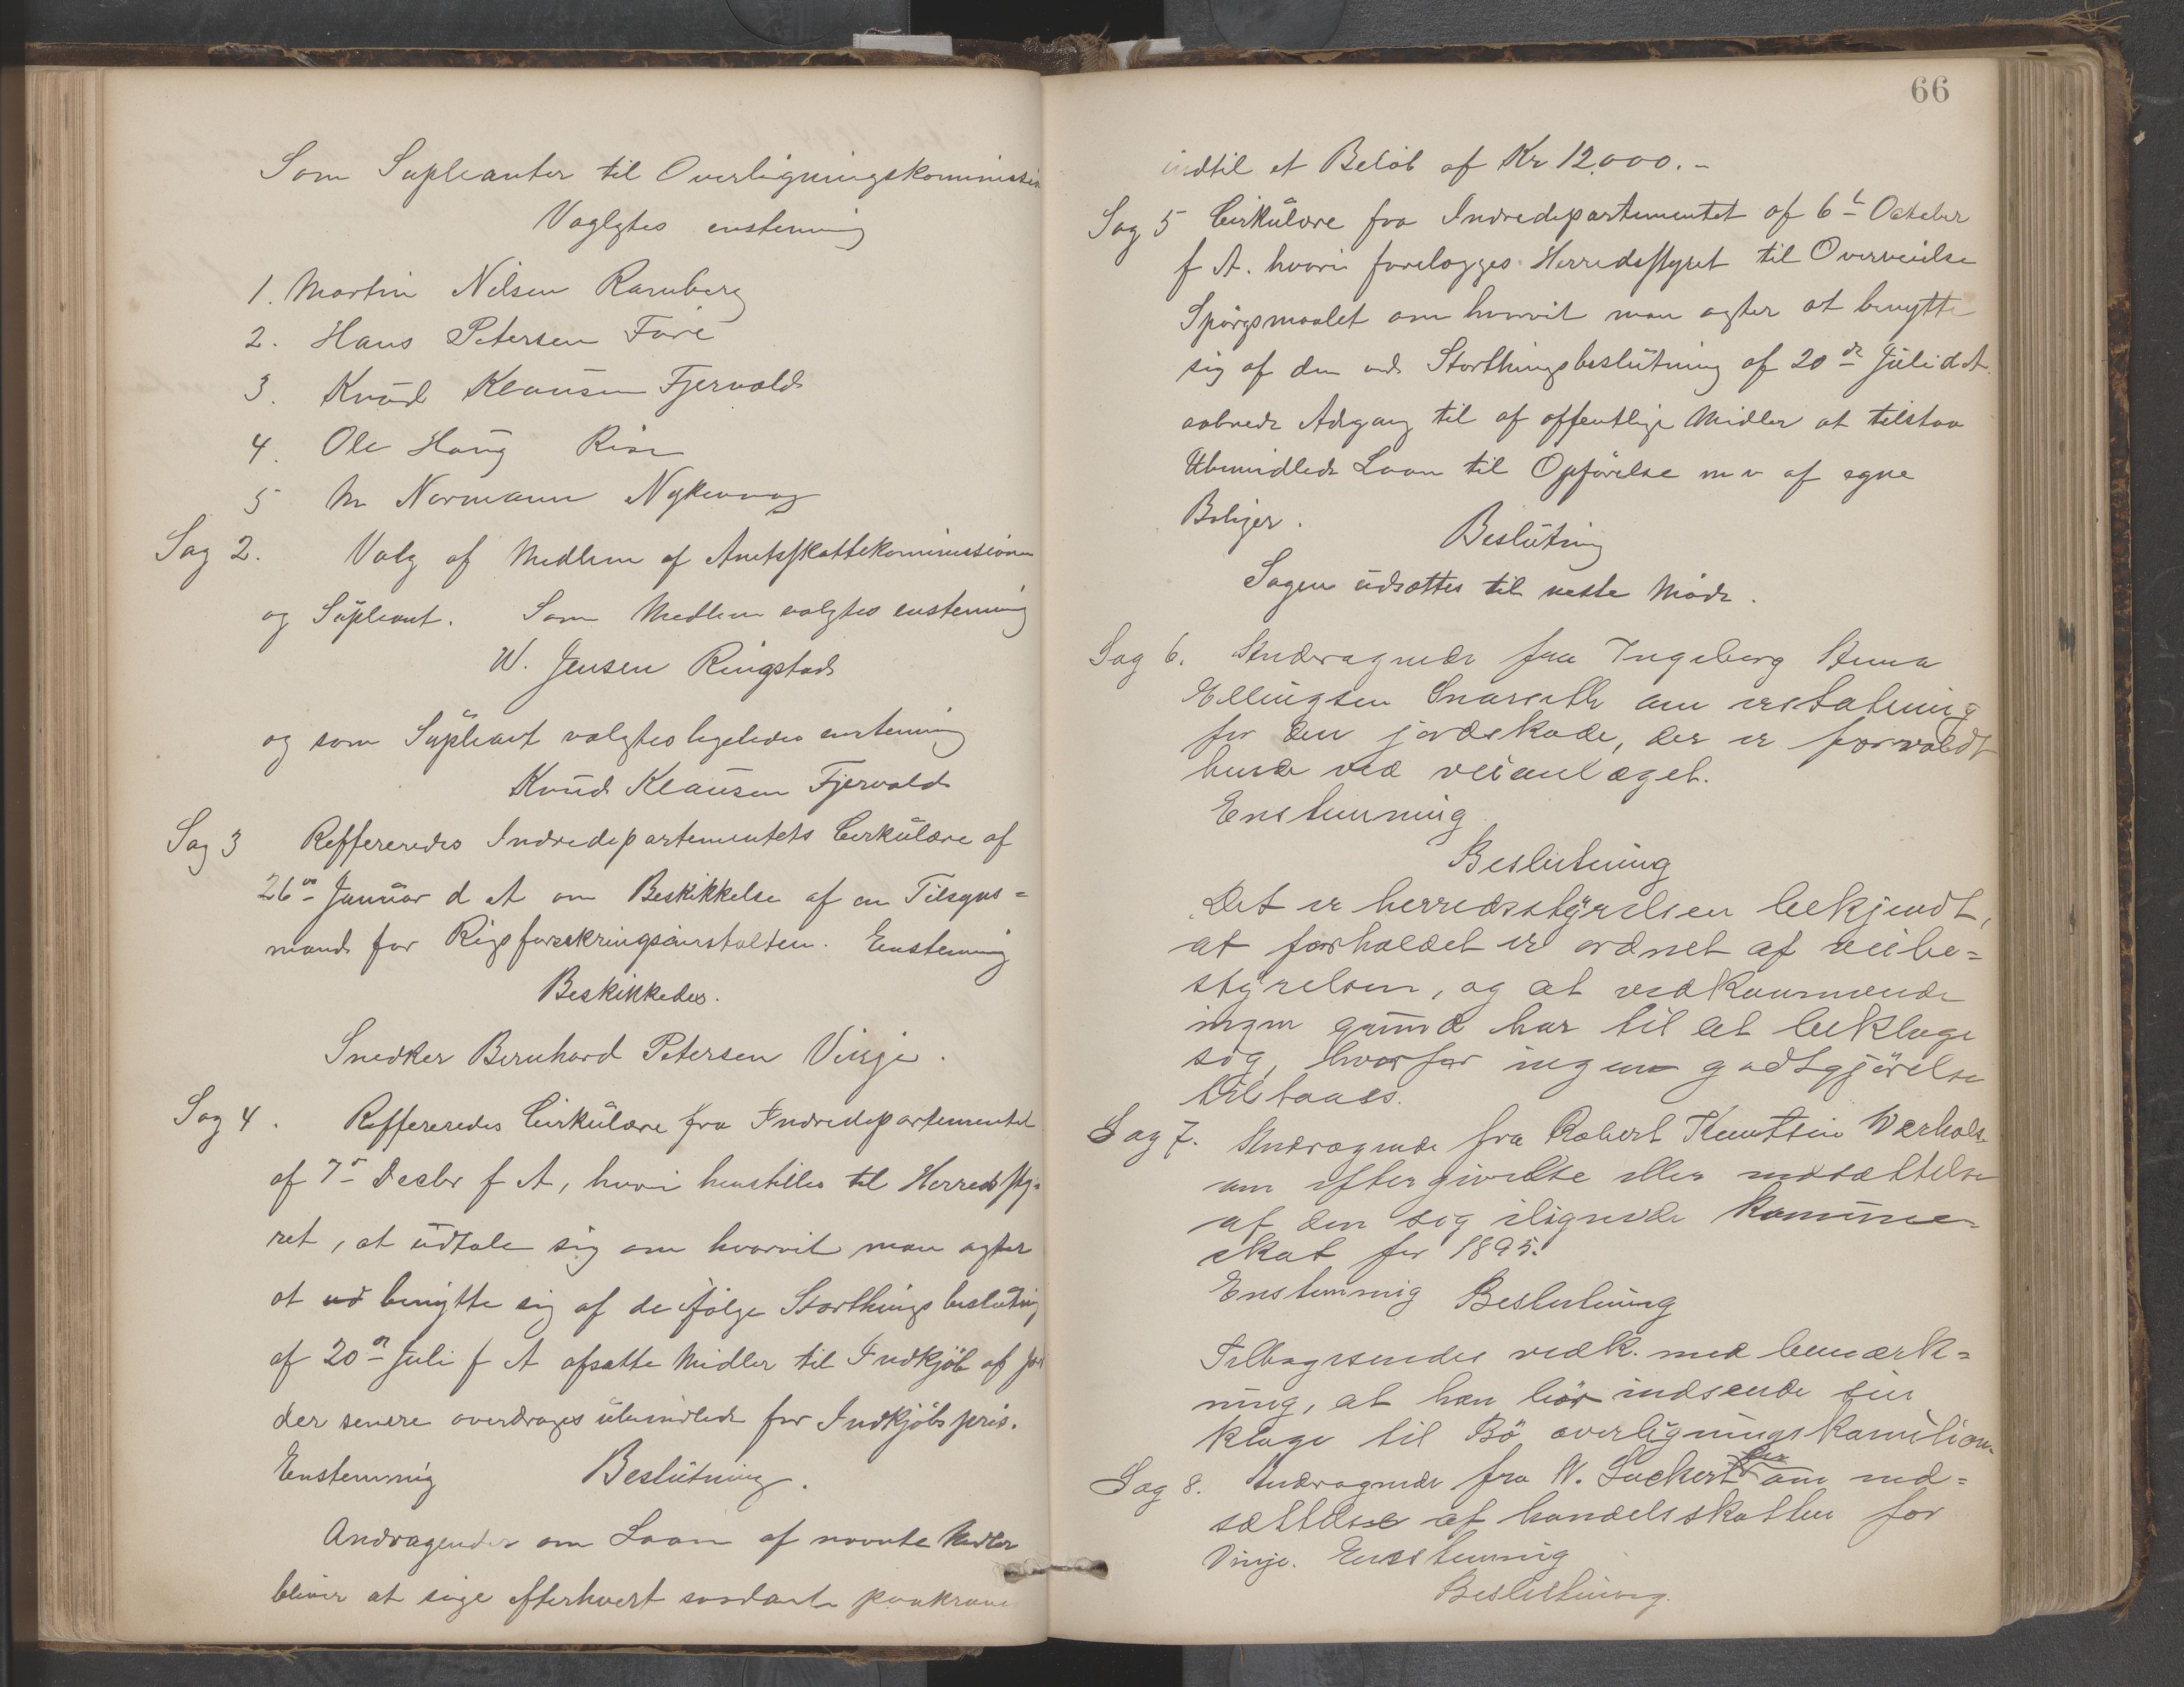 Som Supleanter til Overligningskommissio
Valgtes enstemmig
1. Martin Nilsen Ramberg
2. Hans Petersen Føre
3. Knud Klausen Fjervold
4. Ole Haug Rise
5 M Normann Nykvaag
Sag 2. Valg af Medlem af Amtsskattekommissionen
og Supleant. Som Medlem valgtes enstemmig
W. Jensen Ringstad
og som Supleant valgtes ligeledes enstemmig
Knud Klausen Fjervold
Sag 3 Reffereredes Indredepartementets Cirkulære af
26de Januar d A om Beskikkelse af en Tilsyns=
mand for Rigsforsikringsanstalten. Enstemmig
Beskikkedes.
Snedker Bernhard Petersen Vinje.
Sag 4. Reffereredes Cirkulære fra Indredepartementet
af 7de Decbr f A, hvori henstilles til Herredssty=
ret, at udtale sig om hvorvit man agter
at ud benytte sig af de ifølge Storthingsbeslutnig
af 20de Juli f A afsatte Midler til Indkjöb af Jor
der senere overdrages ubemidlede for Indkjöbspris.
Enstemmig Beslutning.
Andragender om Laan af nævnte Midler
bliver at søge efterhvert saadant paakræve
66
indtil et Belöb af Kr 12.000.-
Sag 5 Cirkulære fra Indredepartementet af 6te October
f A. hvori forelægges Herredsstyret til Overveielse
Spörgsmaalet om hvorvit man agter at benytte
sig af den ved Storthingsbeslutning af 20de Juli d A.
aabnede Adgang til af offentlige Midler at tilstaa
Ubemidlede Laan til Opförelse m v af egne
Boliger.
Beslutnig
Sagen udsættes til neste Möde.
Sag 6. Andragende fra Ingeborg Anna
Ellingsen Snarseth om erstatning
for den jordskade, der er forvoldt
hende ved veianlæget.
Enstemmig
Beslutning
Det er herredsstyrelsen bekjendt,
at forholdet er ordnet af veibe=
styrelsen, og at vedkommende
ingen grund har til at beklage
sig, hvorfor ingen godtgjörelse
tilstaaes.
Sag 7. Andragende fra Robert Knutsen Verhals
om eftergivelse eller nedsættelse
af den sig ilignede Kommune-
skat for 1895.
Enstemmig Beslutning
Tilbagesendes vedk. med bemærk=
ning, at han bör indsende sin
klage til Bö overligningskommission.
Sag 8. Andragende fra W. Luckert om ned=
sættelse af handelsskatten for
Vinje. Enstemmig
Beslutning.